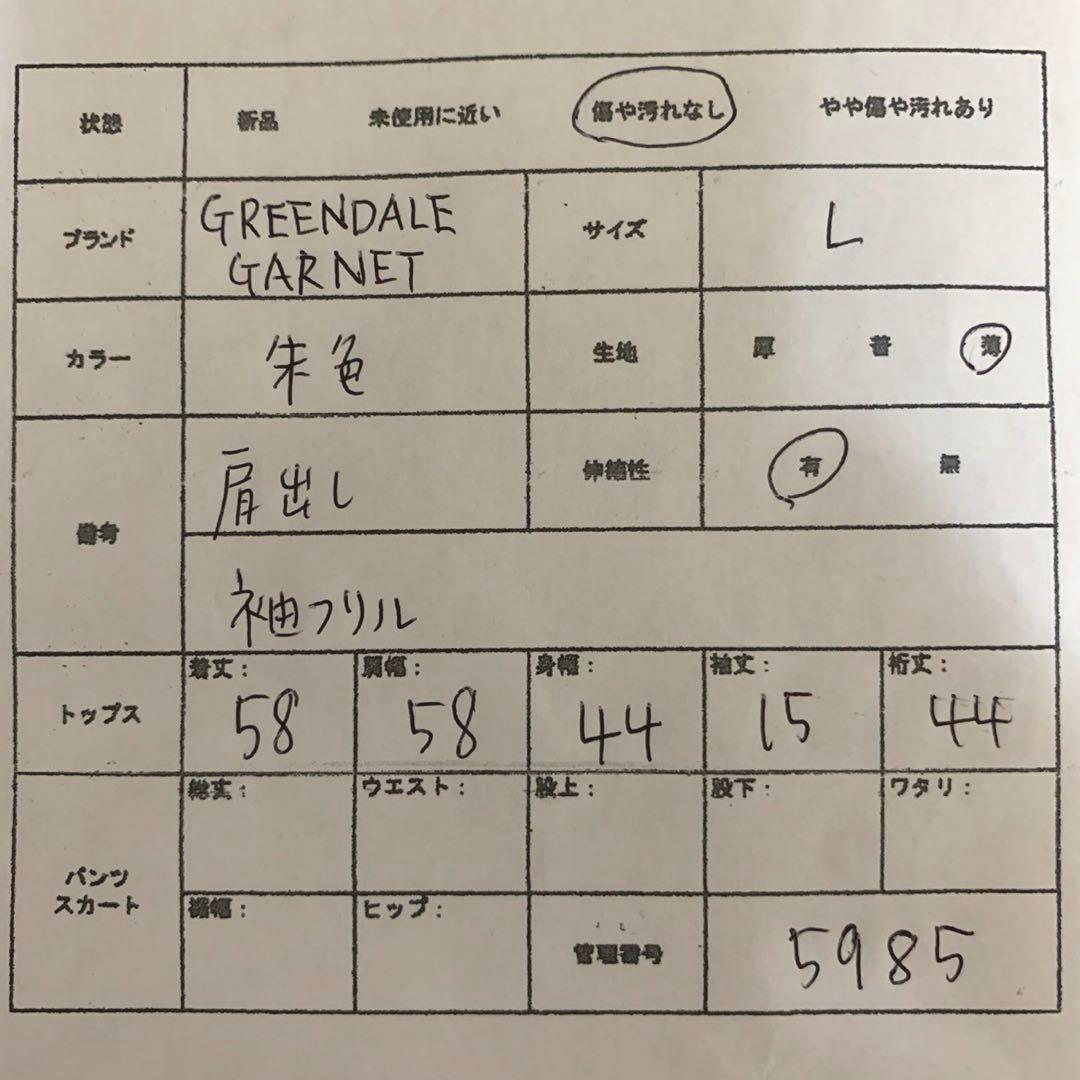 状態 新品 未使用に近い 傷や汚れなし やや傷や汚れあり
ブランド GREENDALE GARNET サイズ L
カラー 朱色 生地 厚 普 薄
備考 肩出し 伸縮性 有 無
袖フリル
トップス 着丈: 肩幅: 身幅: 袖丈: 裄丈:
58 58 44 15 44
パンツ スカート 総丈: ウエスト: 股上: 股下: ワタリ:
裾幅: ヒップ: 管理番号 5985